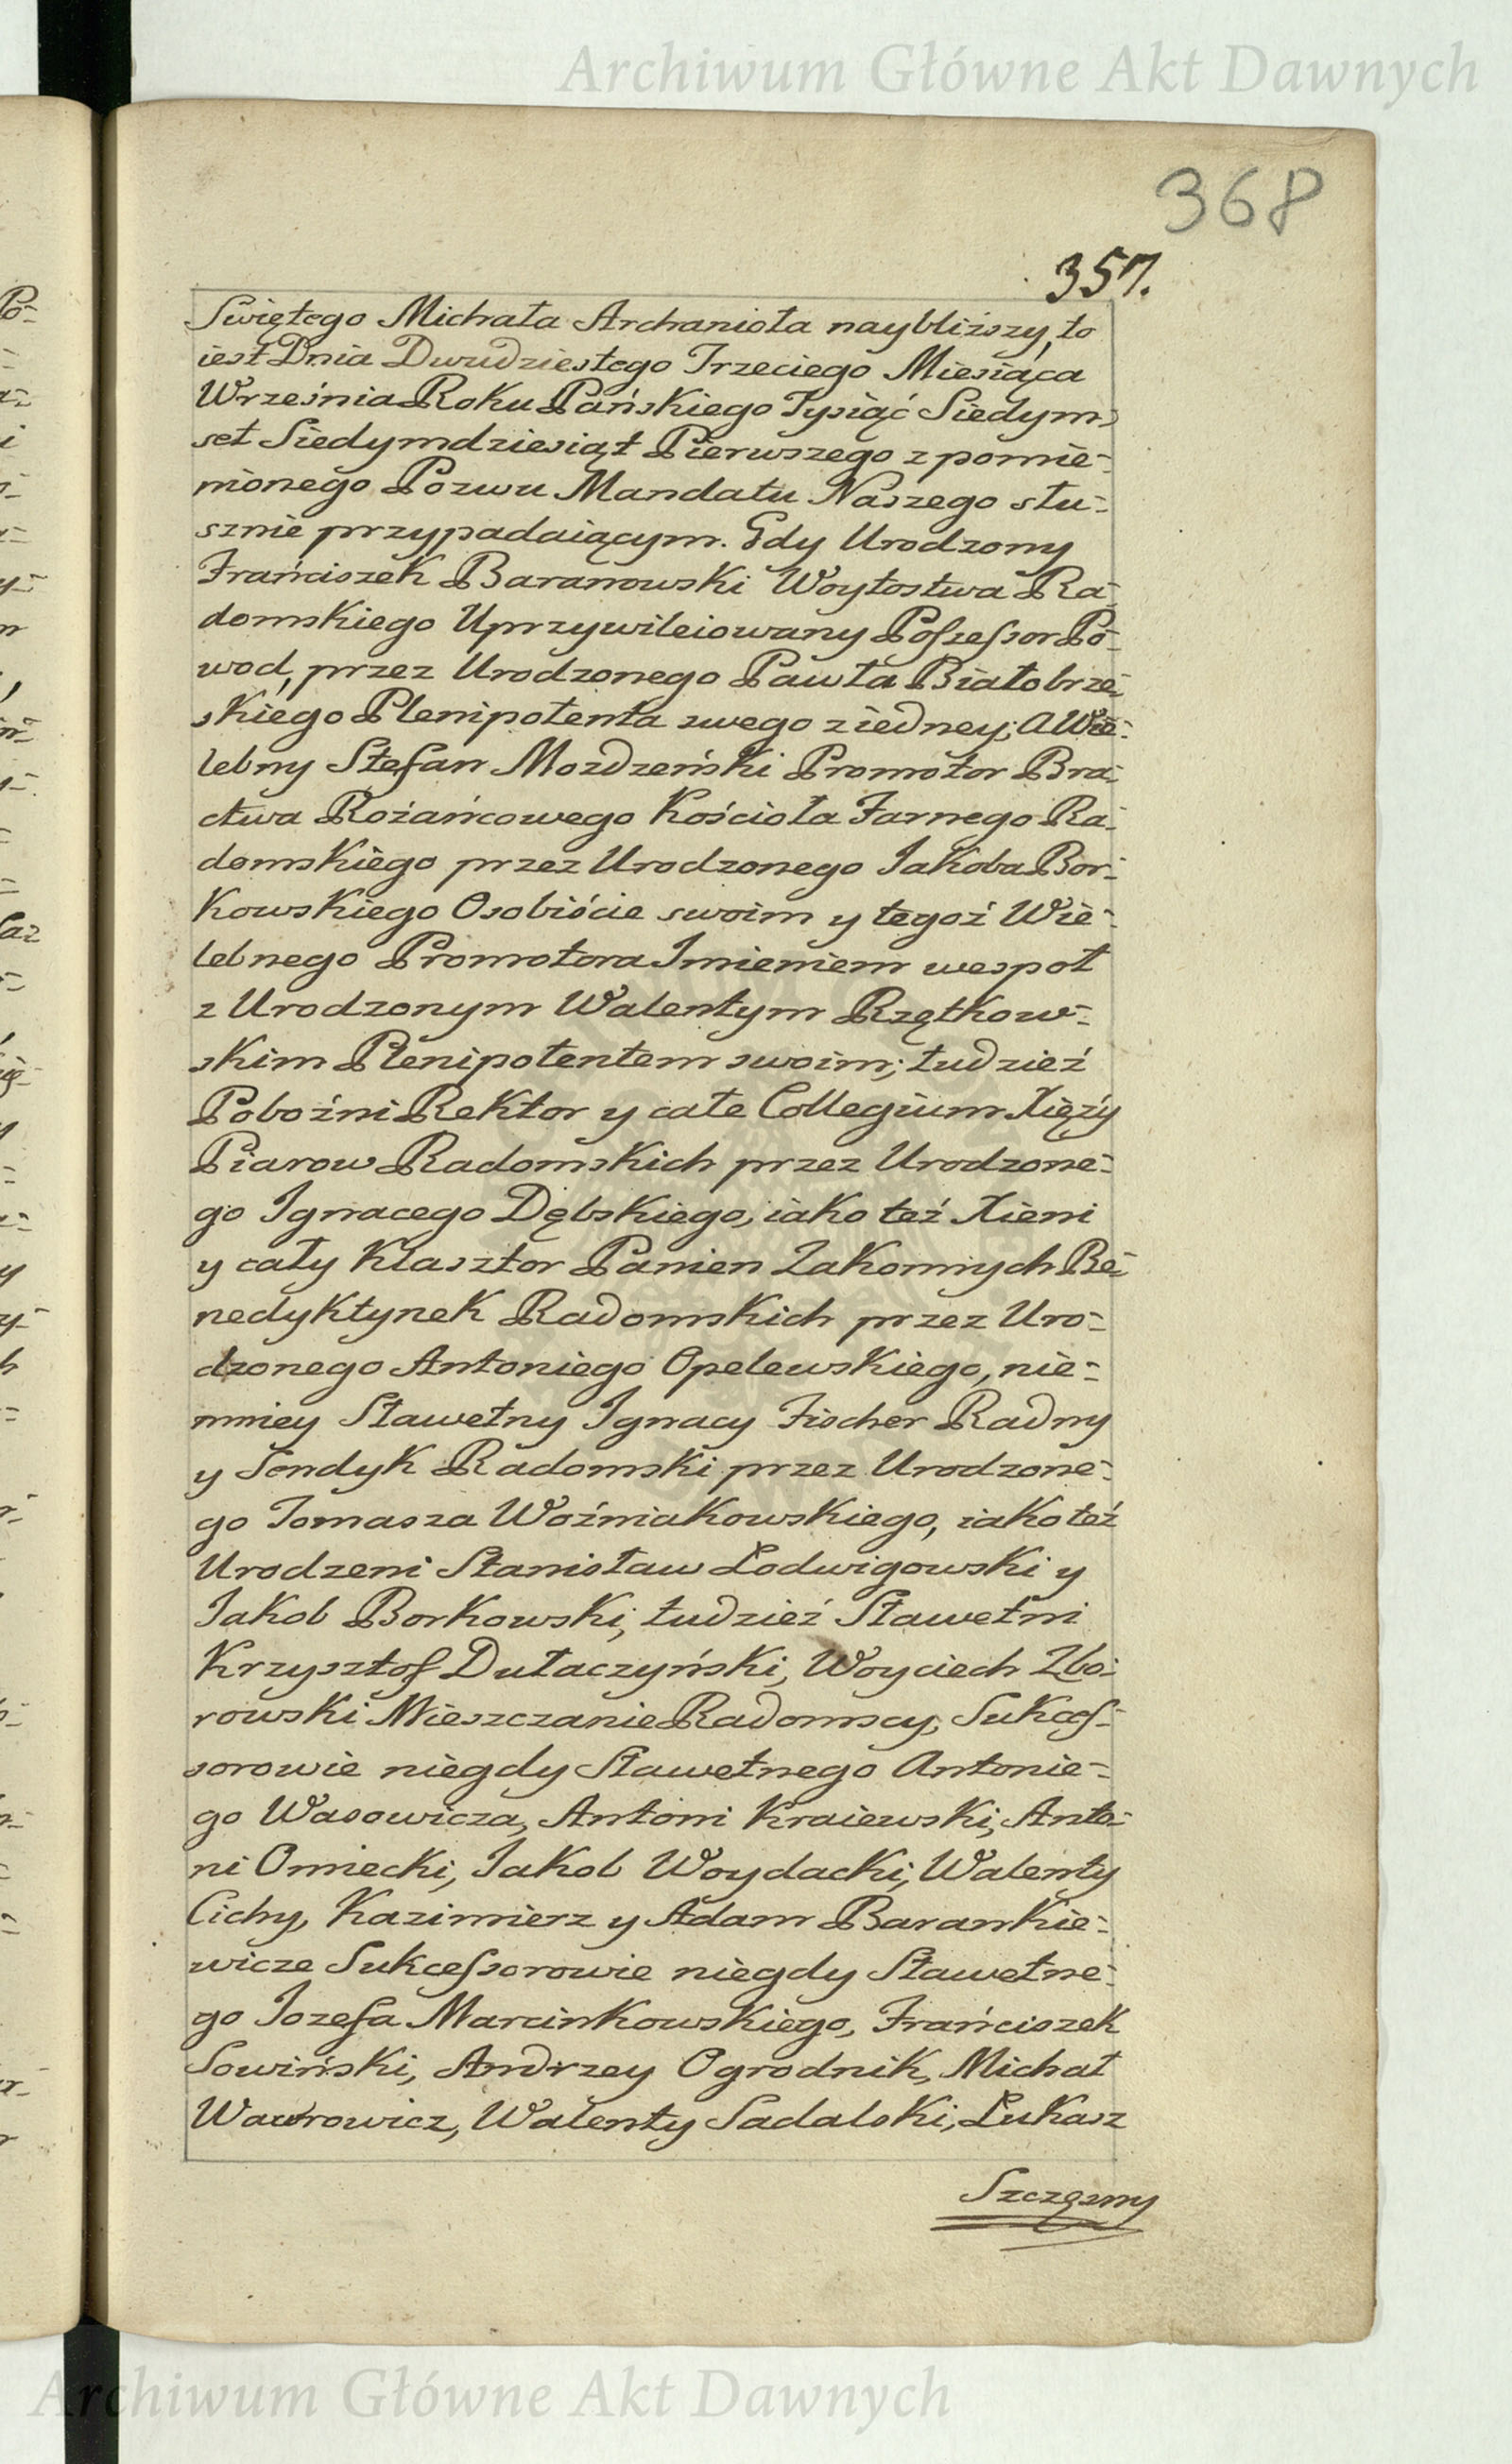 Archiwum Główne Akt Dawnych
368
357.
Swiętego Michała Archanioła naybliższy, to
iest Dnia Dwudziestego Trzeciego Miesiąca
Wrzesnia Roku Pańskiego Tysiąć Siedym
set Siedymdziesiąt Pierwszego z pomie=
nionego Pozwu Mandatu Naszego słu=
sznie przypadaiącym. Gdy Urodzony
Franciszek Baranowski Woytostwa Ra=
domskiego Uprzywileiowany Possessor Po=
wod, przez Urodzonego Pawła Białobrze=
skiego Plenipotenta swego z iedney; a Wie=
lebny Stefan Mozdzeński Promotor Bra=
ctwa Rożańcowego Kościoła Farnego Ra=
domskiego przez Urodzonego Jakoba Bor=
kowskiego Osobiście swoim y tegoż Wie=
lebnego Promotora Imieniem wespoł
z Urodzonym Walentym Rzętkow=
skim Plenipotentem swoim; tudzież
Pobożni Rektor y całe Collegium Xięży
Piarow Radomskich przez Urodzone=
go Ignacego Dębskiego, iako też Xieni
y cały Klasztor Panien Zakonnych Be=
nedyktynek Radomskich przez Uro=
dzonego Antoniego Opelewskiego, nie=
mniey Sławetny Ignacy Fischer Radny
y Syndyk Radomski przez Urodzone=
go Tomasza Woźniakowskiego, iako też
Urodzeni Stanisław Lodwigowski y
Jakob Borkowski, tudzież Sławetni
Krzysztof Dutaczyński, Woyciech Zbo=
rowski Mieszczanie Radomscy, Sukces=
sorowie niegdy Sławetnego Antonie=
go Wasowicza, Antoni Kraiewski, Anto=
ni Omiecki, Jakob Woydacki, Walenty
Cichy, Kazimierz y Adam Barankie=
wicze Sukcessorowie niegdy Sławetne=
go Jozefa Marcinkowskiego, Franciszek
Sowiński, Andrzey Ogrodnik, Michał
Wawrowicz, Walenty Sadalski, Łukasz
Szczęsny
Archiwum Główne Akt Dawnych